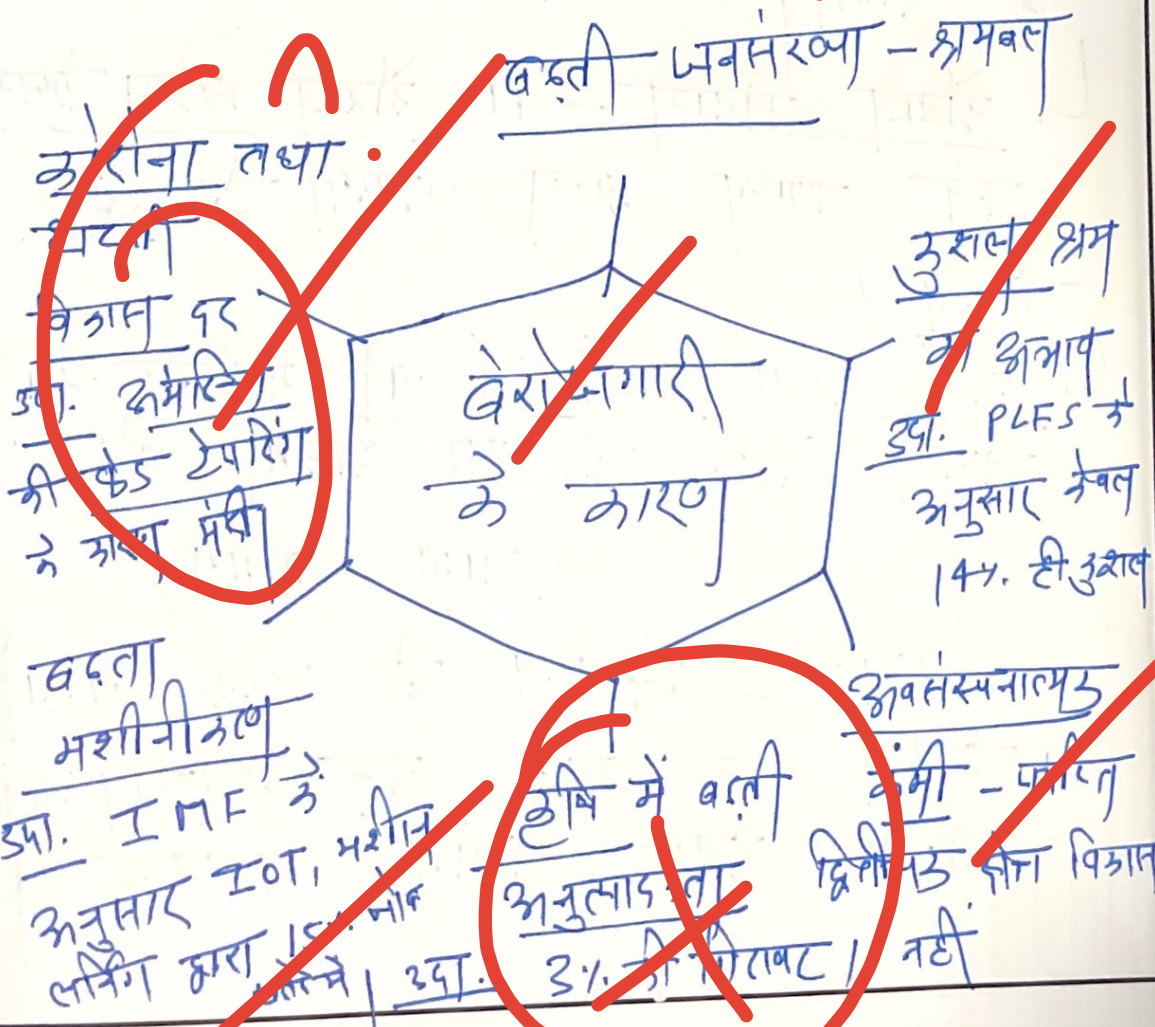 बढ़ती जनसंख्या - श्रमबल
कोरोना तथा
घटती
विकास दर
उदा. अमेरिका
की फेड टेपरिंग
के कारण मंदी
बेरोजगारी
के कारण
कुशल श्रम
का अभाव
उदा. PLFS के
अनुसार केवल
14%. ही कुशल
बढ़ता
मशीनीकरण
उदा. IMF के
अनुसार IOT, मशीन
लर्निंग द्वारा 15%
कृषि में बढ़ती
अनुत्पादकता
उदा. 3% की गिरावट।
अवसंरचनात्मक
कमी - पर्याप्त
द्वितीयक क्षेत्र विकास
नहीं